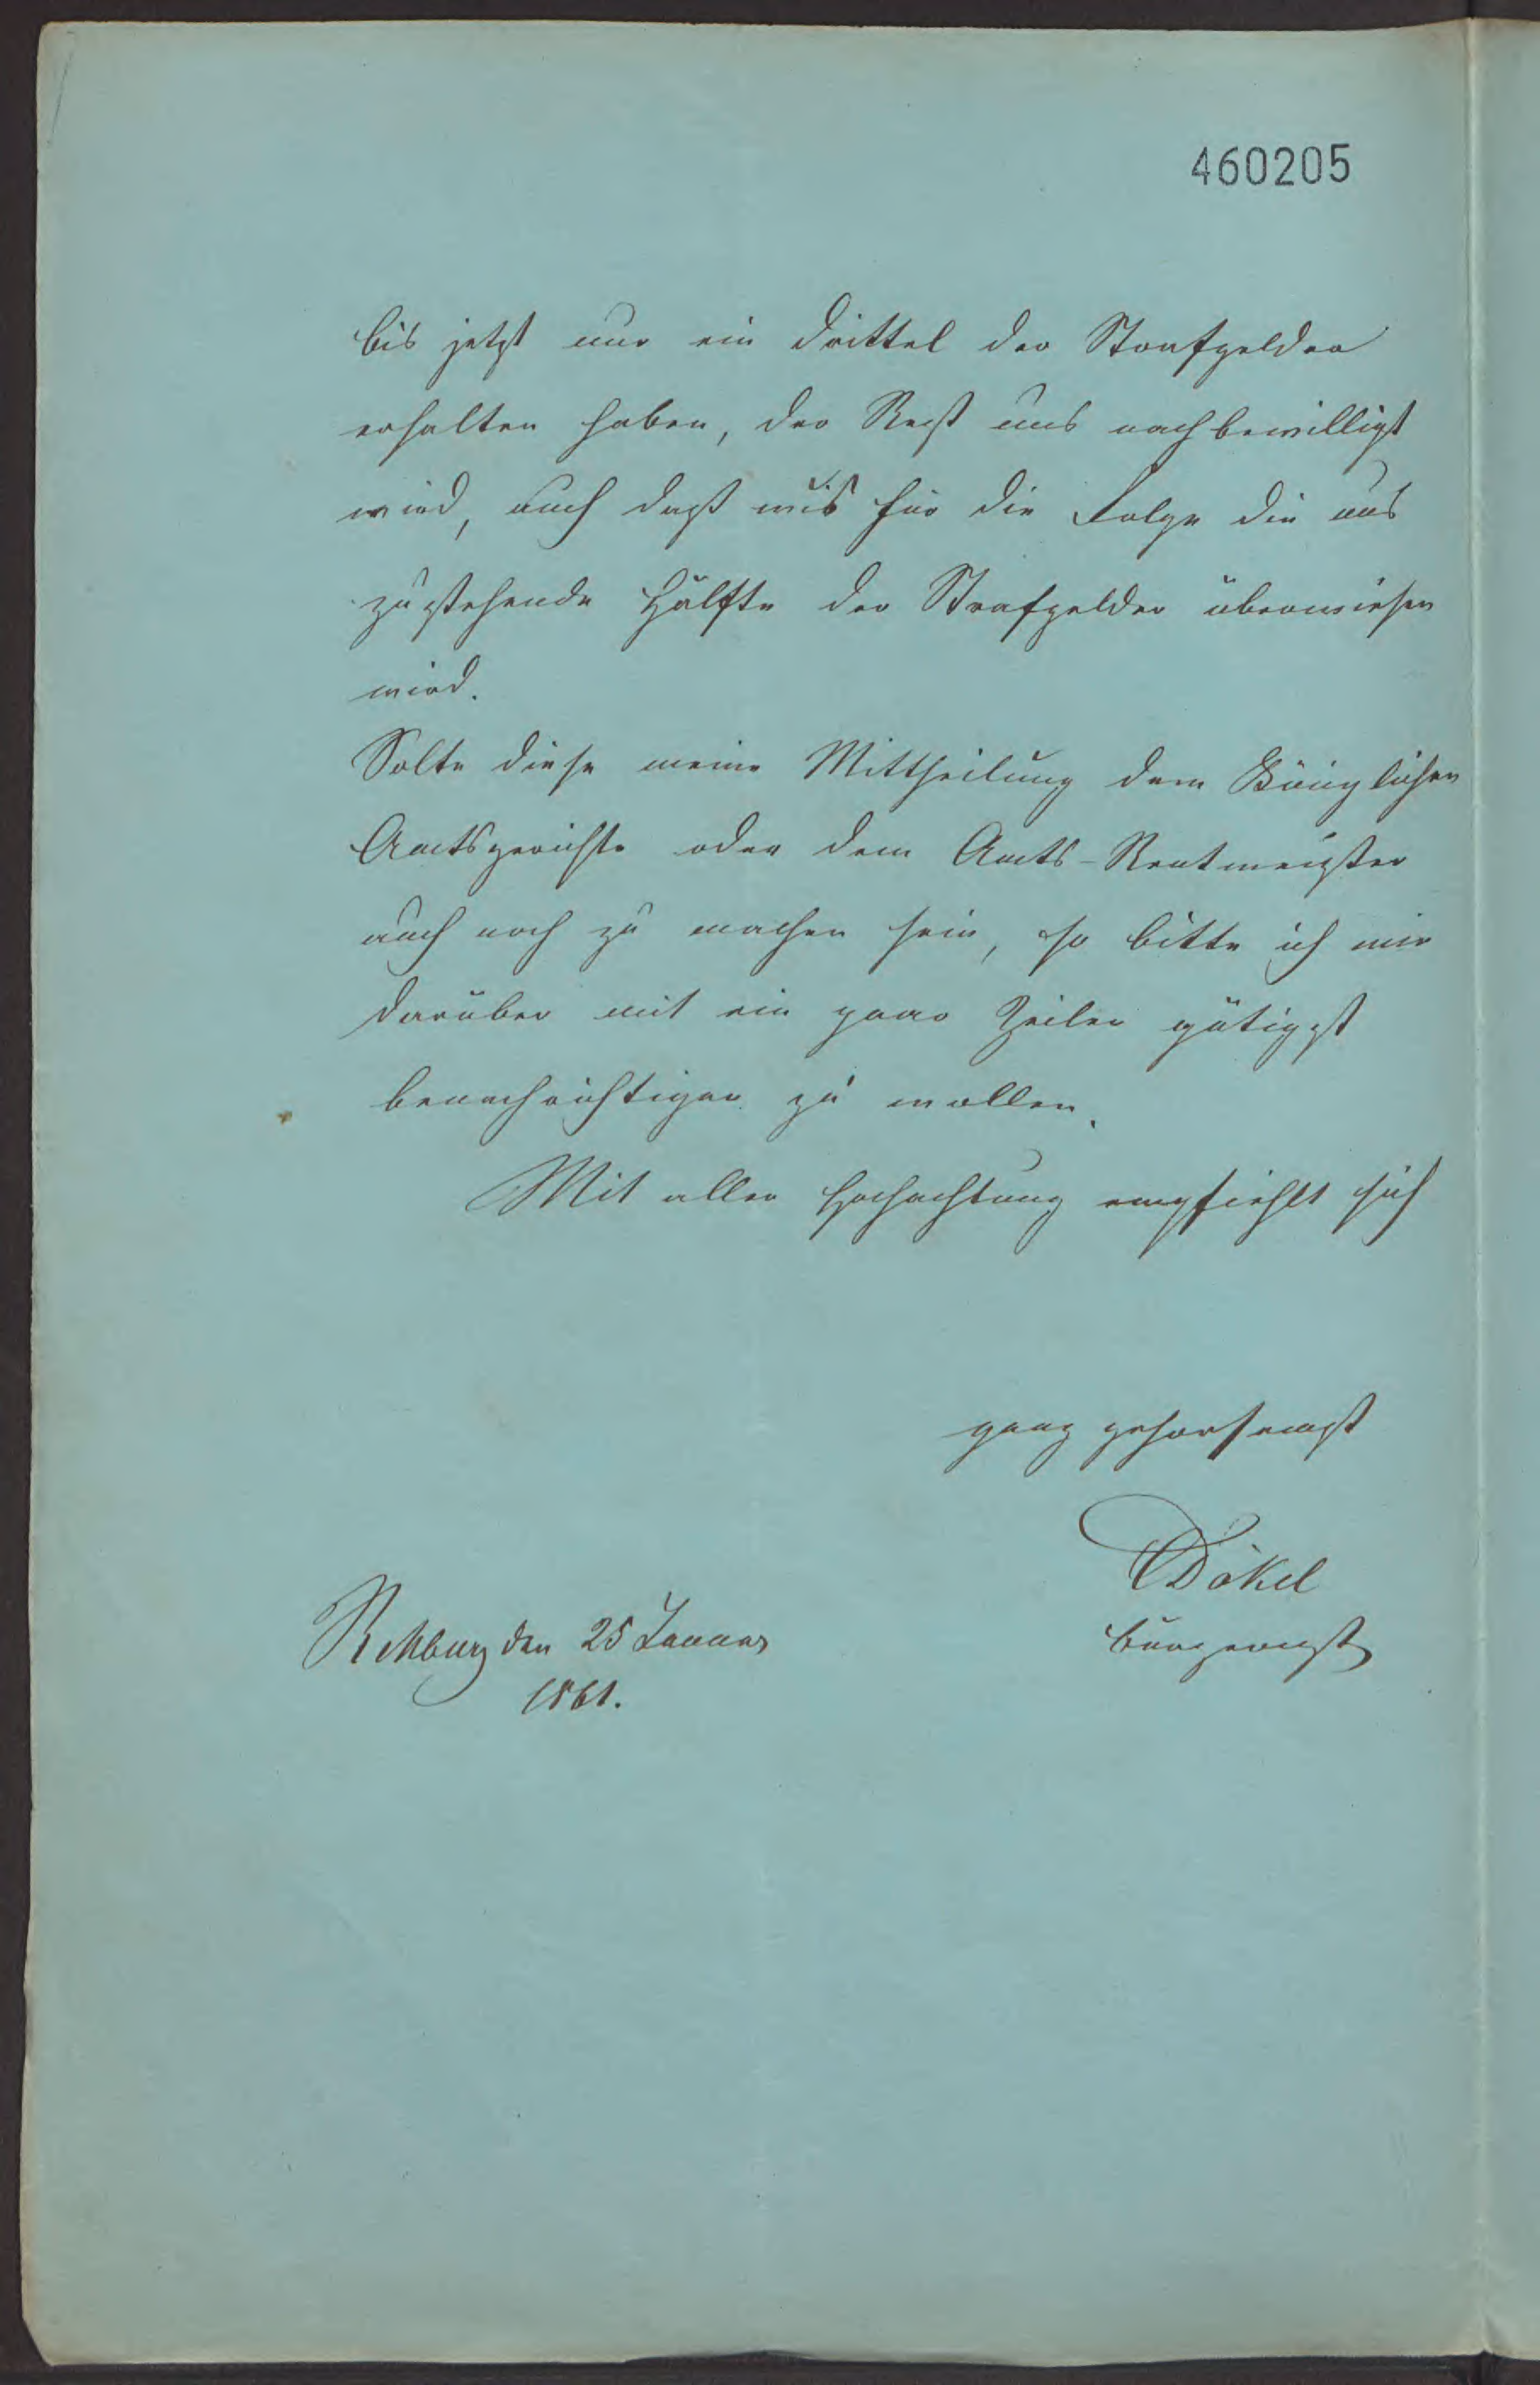 460205
bis jetzt nur ein Drittel der Strafgelder
erhalten haben, der Rest uns nachbewilligt
wird, auch daß uns für die Folge die uns
zustehende Hälfte der Strafgelder überwiesen
wird.
Solte diese meine Mittheilung dem Königlichen
Amtsgerichte oder dem Amts-Rentmeister
auch noch zu machen sein, so bitte ich mir
darüber mit ein paar Zeilen gütigst
benachrichtigen zu wollen.
Mit aller Hochachtung empfiehlt sich
ganz gehorsamst
Dökel
Bürgermstr
Rehburg den 25 Januar
1861.